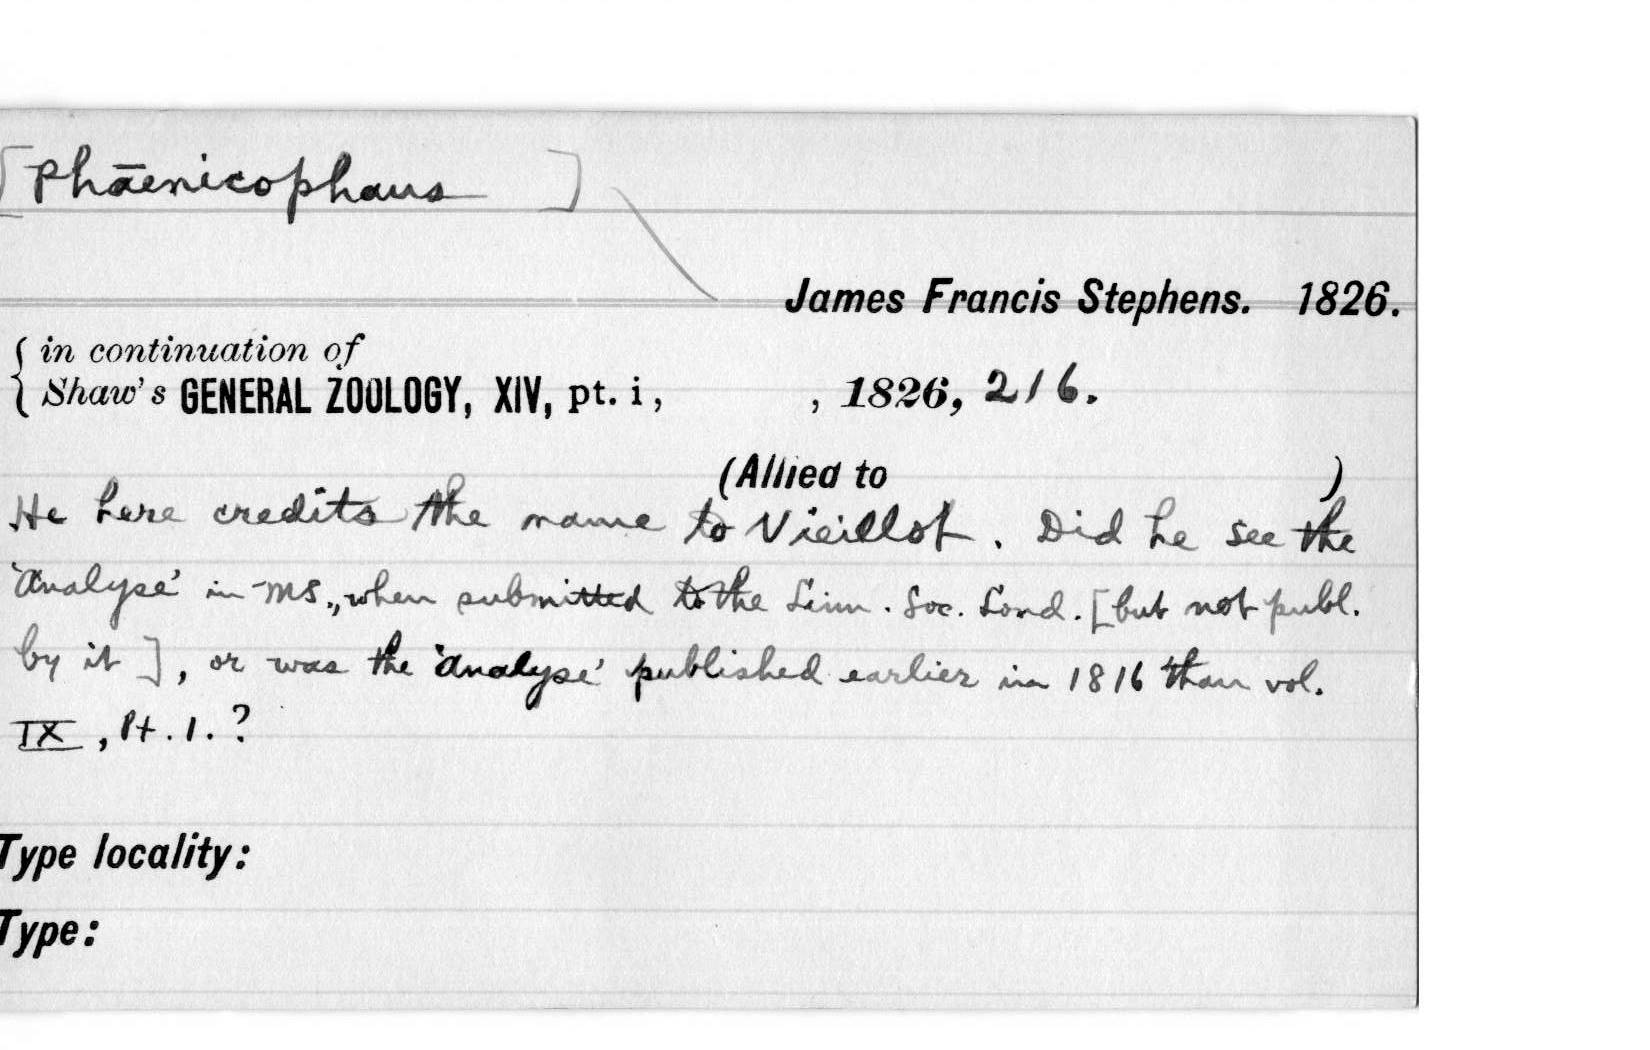 [Phāenicophaus ]
James Francis Stephens. 1826.
{ in continuation of
Shaw's GENERAL ZOOLOGY, XIV, pt. i, , 1826, 216.
(Allied to )
He here credits the name to Vieillot. Did he see the
'Analyse' in MS., when submitted to the Linn. Soc. Lond. [but not publ.
by it ], or was the 'Analyse' published earlier in 1816 than vol.
IX, Pt. 1. ?
Type locality:
Type: